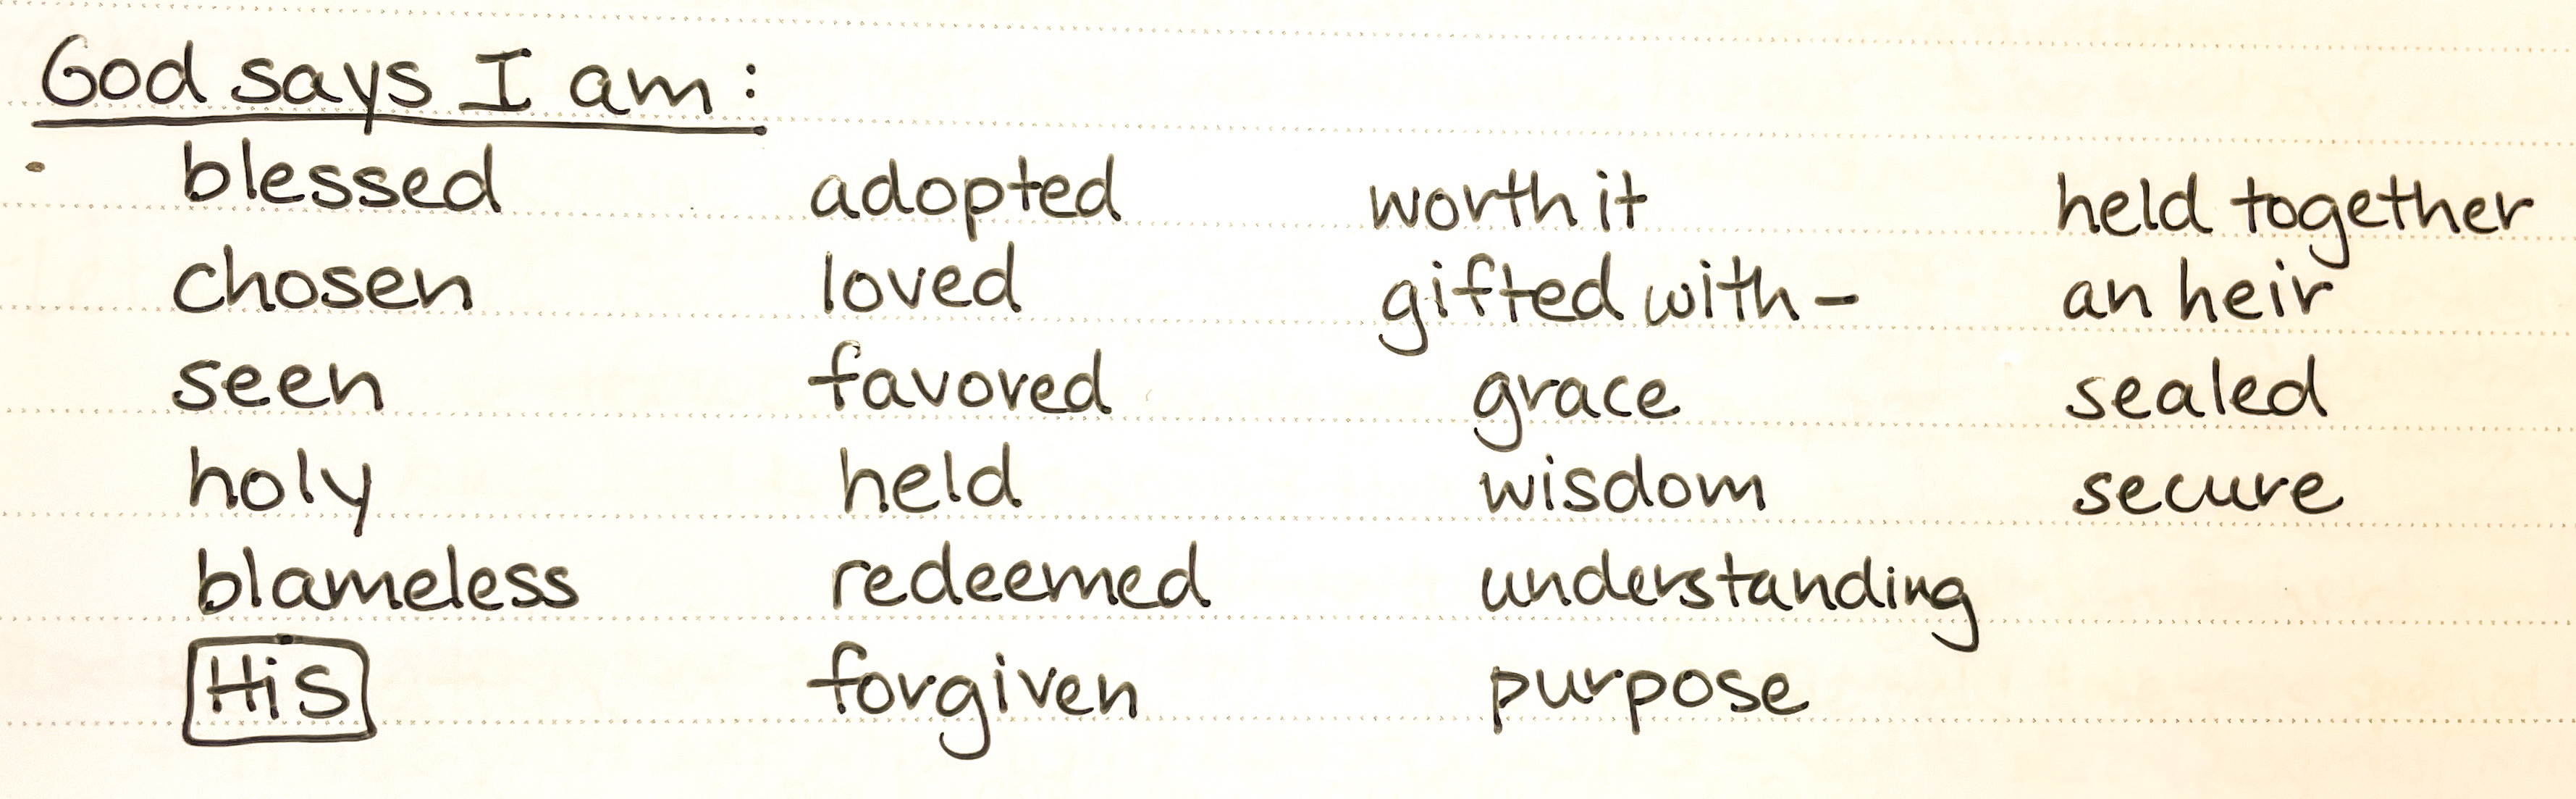 God says I am:
blessed
chosen
seen
holy
blameless
His
adopted
loved
favored
held
redeemed
forgiven
worth it
gifted with -
grace
wisdom
understanding
purpose
held together
an heir
sealed
secure